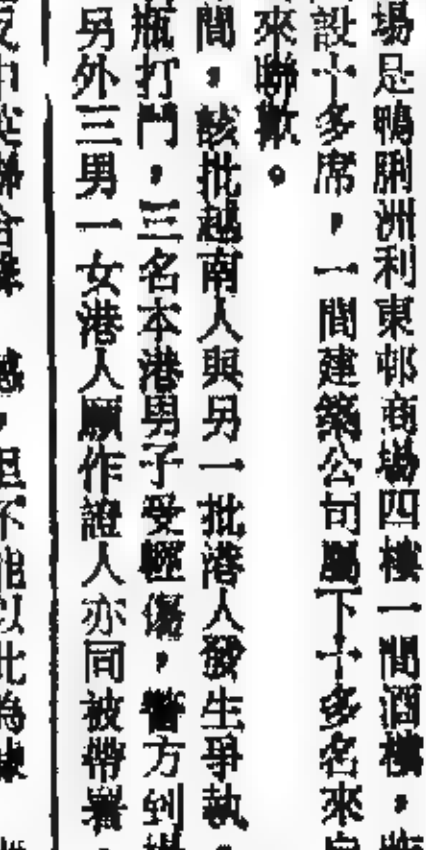 場是鴨脷洲利東邨商場四樓一間酒樓，
設十多席，一間建築公司屬下十多名來
來聯歡。
間，該批越南人與另一批港人發生爭執。
瓶打鬥，三名本港男子受輕傷，警方到場
另外三男一女港人願作證人亦同被帶署，
憾，但不能以此為